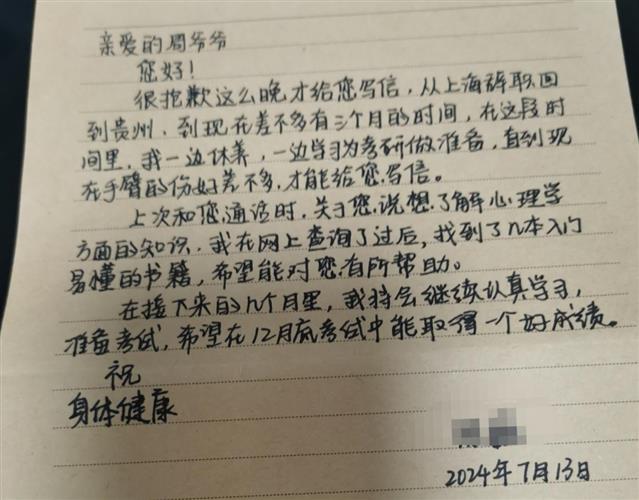 亲爱的周爷爷
您好!
很抱歉这么晚才给您写信,从上海辞职回
到贵州,到现在差不多有三个月的时间,在这段时
间里,我一边休养,一边学习为考研做准备,直到现
在手臂的伤好差不多,才能给您写信。
上次和您通话时,关于您说想了解心理学
方面的知识,我在网上查询了过后,找到了几本入门
易懂的书籍,希望能对您有所帮助。
在接下来的几个月里,我将会继续认真学习,
准备考试,希望在12月底考试中能取得一个好成绩。
祝
身体健康
2024年7月13日